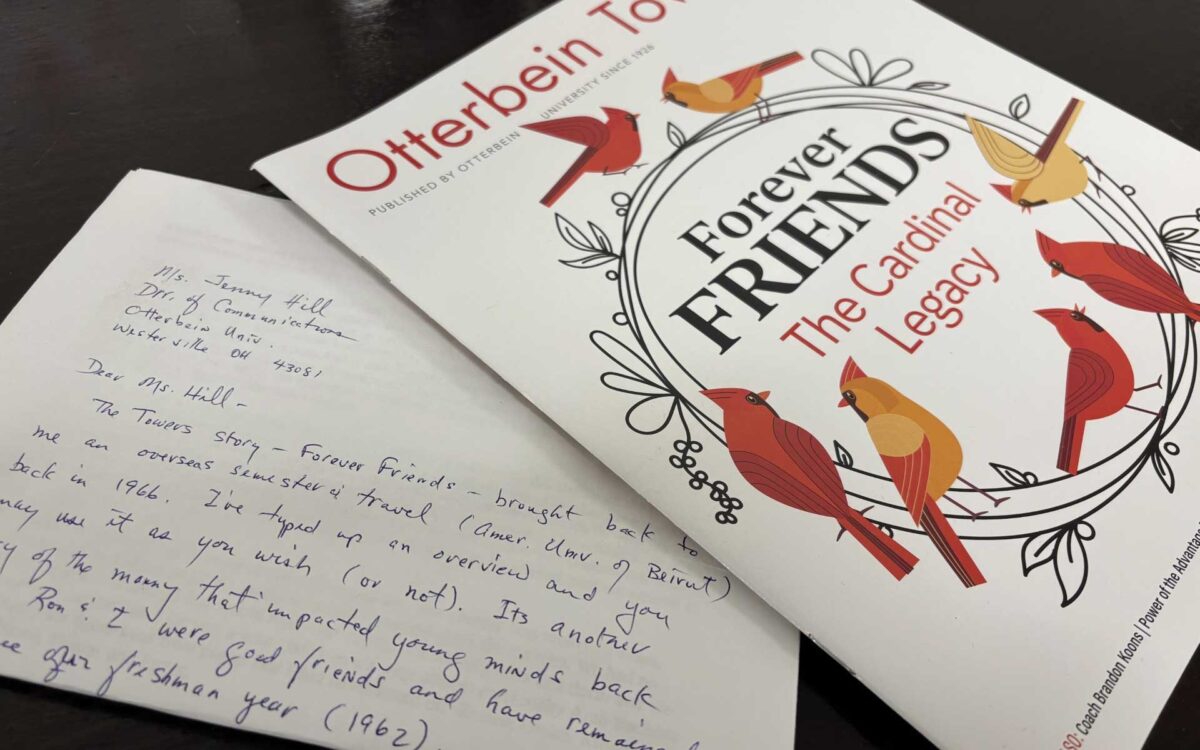 Ms. Jenny Hill
Dir. of Communications
Otterbein Univ.
Westerville OH 43081
Dear Ms. Hill -
The Towers story - Forever Friends - brought back to
me an overseas semester & travel (Amer. Univ. of Beirut)
back in 1966. I've typed up an overview and you
may use it as you wish (or not). Its another
of the many that impacted young minds back
Ron & I were good friends and have
our freshman year (1962).
Otterbein
PUBLISHED BY OTTERBEIN UNIVERSITY SINCE 1926
Forever
FRIENDS
The Cardinal
Legacy
Coach Brandon Koons | Power of the